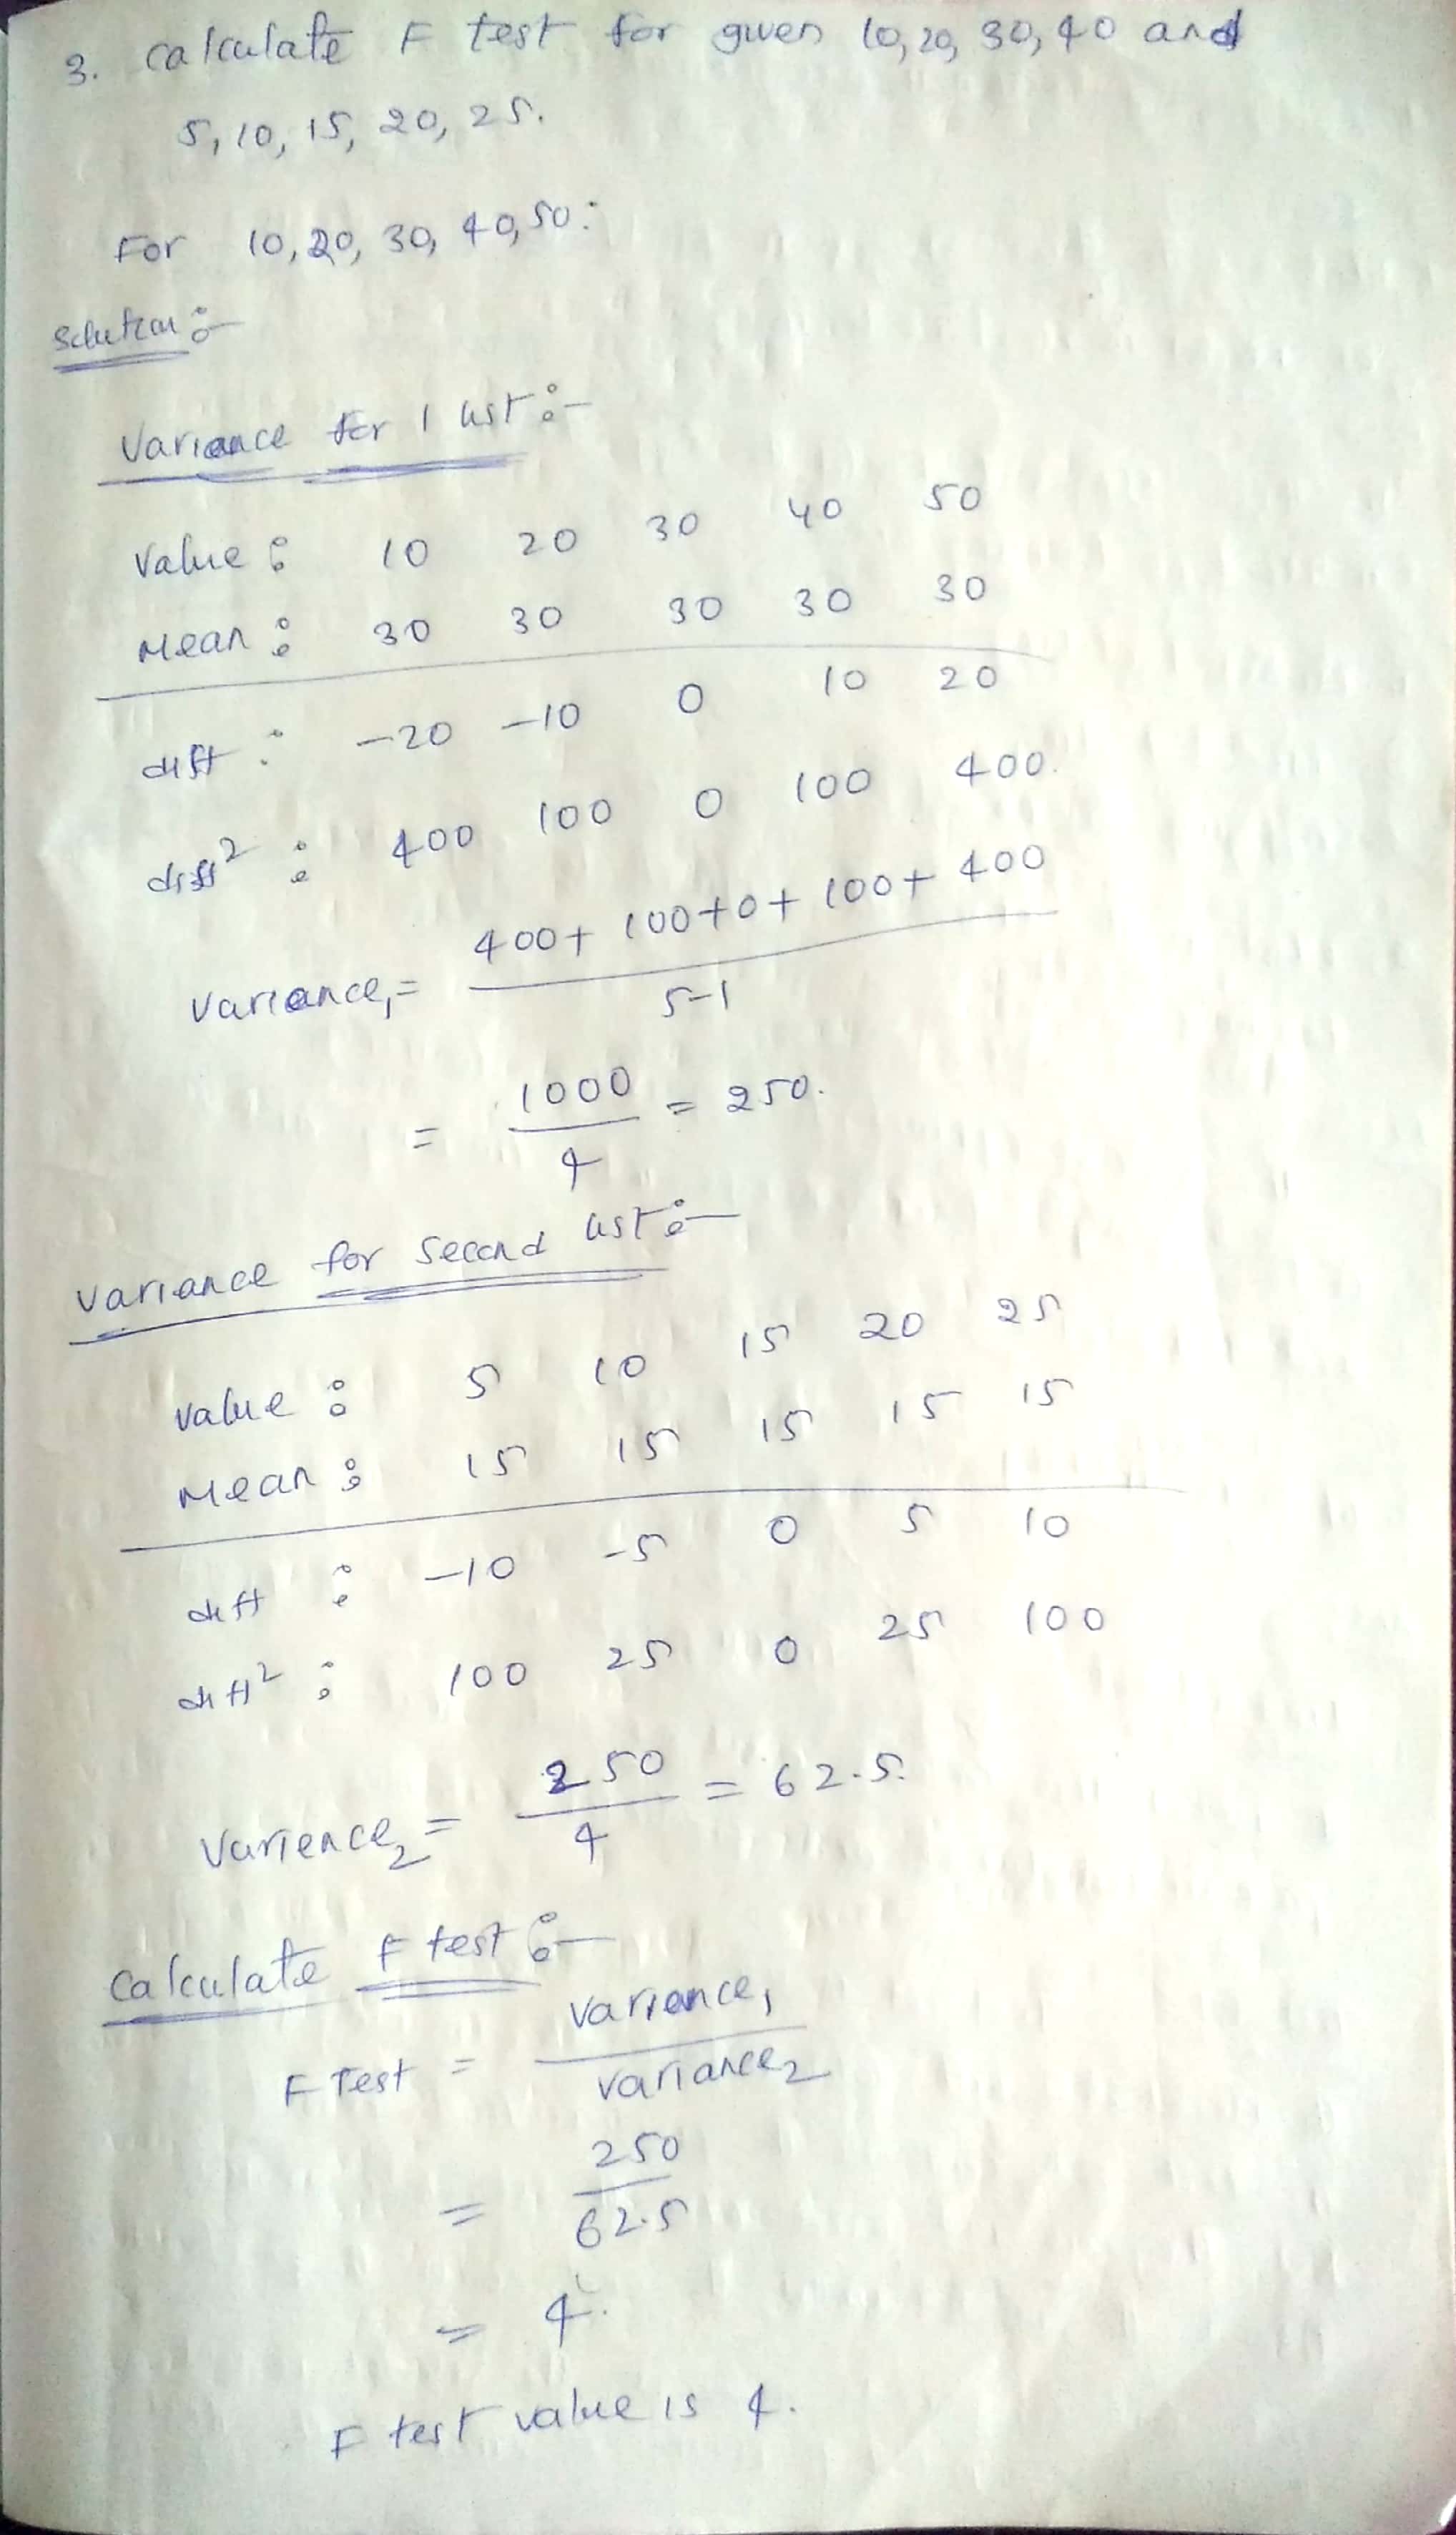 3. calculate F test for given 10, 20, 30, 40 and
5, 10, 15, 20, 25.
For 10, 20, 30, 40, 50:
Solution :-
Variance for 1 list :-
Value : 10 20 30 40 50
Mean : 30 30 30 30 30
diff : -20 -10 0 10 20
diff² : 400 100 0 100 400.
Variance₁ = 400 + 100 + 0 + 100 + 400
5-1
= 1000 / 4 = 250.
Variance for Second list :-
Value : 5 10 15 20 25
Mean : 15 15 15 15 15
diff : -10 -5 0 5 10
diff² : 100 25 0 25 100
Varience₂ = 250 / 4 = 62.5.
Calculate F test :-
F Test = variance₁ / variance₂
= 250 / 62.5
= 4.
F test value is 4.